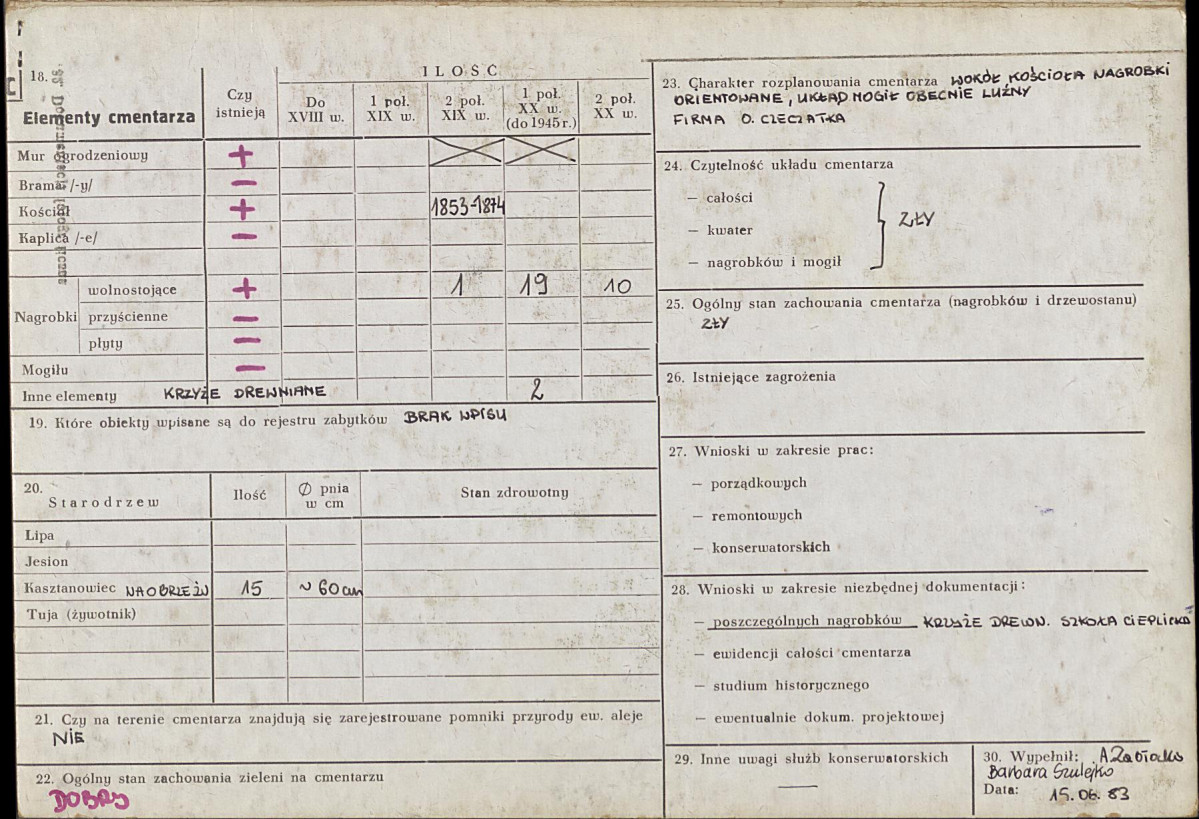 18.
Elementy cmentarza
Czy istnieją
ILOŚĆ
Do XVIII w.
1 poł. XIX w.
2 poł. XIX w.
1 poł. XX w. (do 1945 r.)
2 poł. XX w.
Mur ogrodzeniowy +
Brama /-y/ –
Kościół + 1853-1874
Kaplica /-e/ –
Nagrobki
wolnostojące + 1 19 10
przyścienne –
płyty –
Mogiły –
Inne elementy KRZYŻE DREWNIANE 2
19. Które obiekty wpisane są do rejestru zabytków BRAK WPISU
20. Starodrzew
Ilość
Ø pnia w cm
Stan zdrowotny
Lipa
Jesion
Kasztanowiec NA OBRZEŻU 15 ~ 60 cm
Tuja (żywotnik)
21. Czy na terenie cmentarza znajdują się zarejestrowane pomniki przyrody ew. aleje
NIE
22. Ogólny stan zachowania zieleni na cmentarzu
DOBRY
23. Charakter rozplanowania cmentarza WOKÓŁ KOŚCIOŁA NAGROBKI
ORIENTOWANE, UKŁAD MOGIŁ OBECNIE LUŹNY
FIRMA O. CZECZATKA
24. Czytelność układu cmentarza
– całości
– kwater ZŁY
– nagrobków i mogił
25. Ogólny stan zachowania cmentarza (nagrobków i drzewostanu)
ZŁY
26. Istniejące zagrożenia
27. Wnioski w zakresie prac:
– porządkowych
– remontowych
– konserwatorskich
28. Wnioski w zakresie niezbędnej dokumentacji:
– poszczególnych nagrobków KRZYŻE DREWN. SZKOŁA CIEPLICKA
– ewidencji całości cmentarza
– studium historycznego
– ewentualnie dokum. projektowej
29. Inne uwagi służb konserwatorskich
—
30. Wypełnił:
Barbara Szulejko
Data: 15.06.83